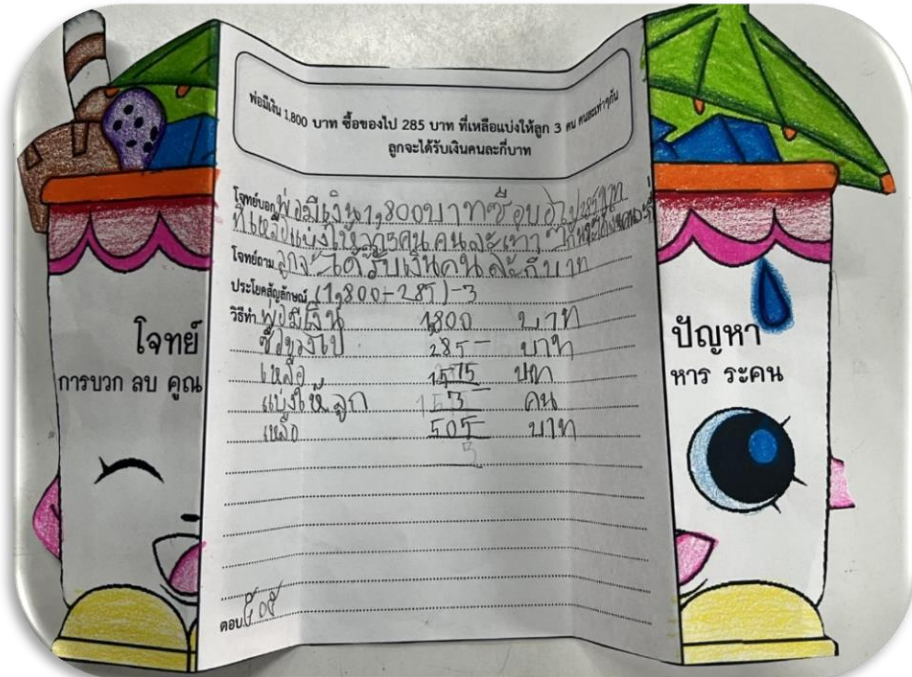 พ่อมีเงิน 1,800 บาท ซื้อของไป 285 บาท ที่เหลือแบ่งให้ลูก 3 คน คนละเท่าๆกัน
ลูกจะได้รับเงินคนละกี่บาท
โจทย์บอก พ่อมีเงิน 1,800 บาท ซื้อ
ที่เหลือแบ่งให้ คน คนละเท่า
โจทย์ถาม ลูกจะได้รับเงินคนละกี่บาท
ประโยคสัญลักษณ์ (1,800-285)-3
วิธีทำ พ่อมีเงิน 1800 บาท
ซื้อของไป 285 บาท
เหลือ บาท
แบ่งให้ลูก 3 คน
เหลือ 505 บาท
ตอบ ๕๐๕
โจทย์
การบวก ลบ คูณ
ปัญหา
หาร ระคน